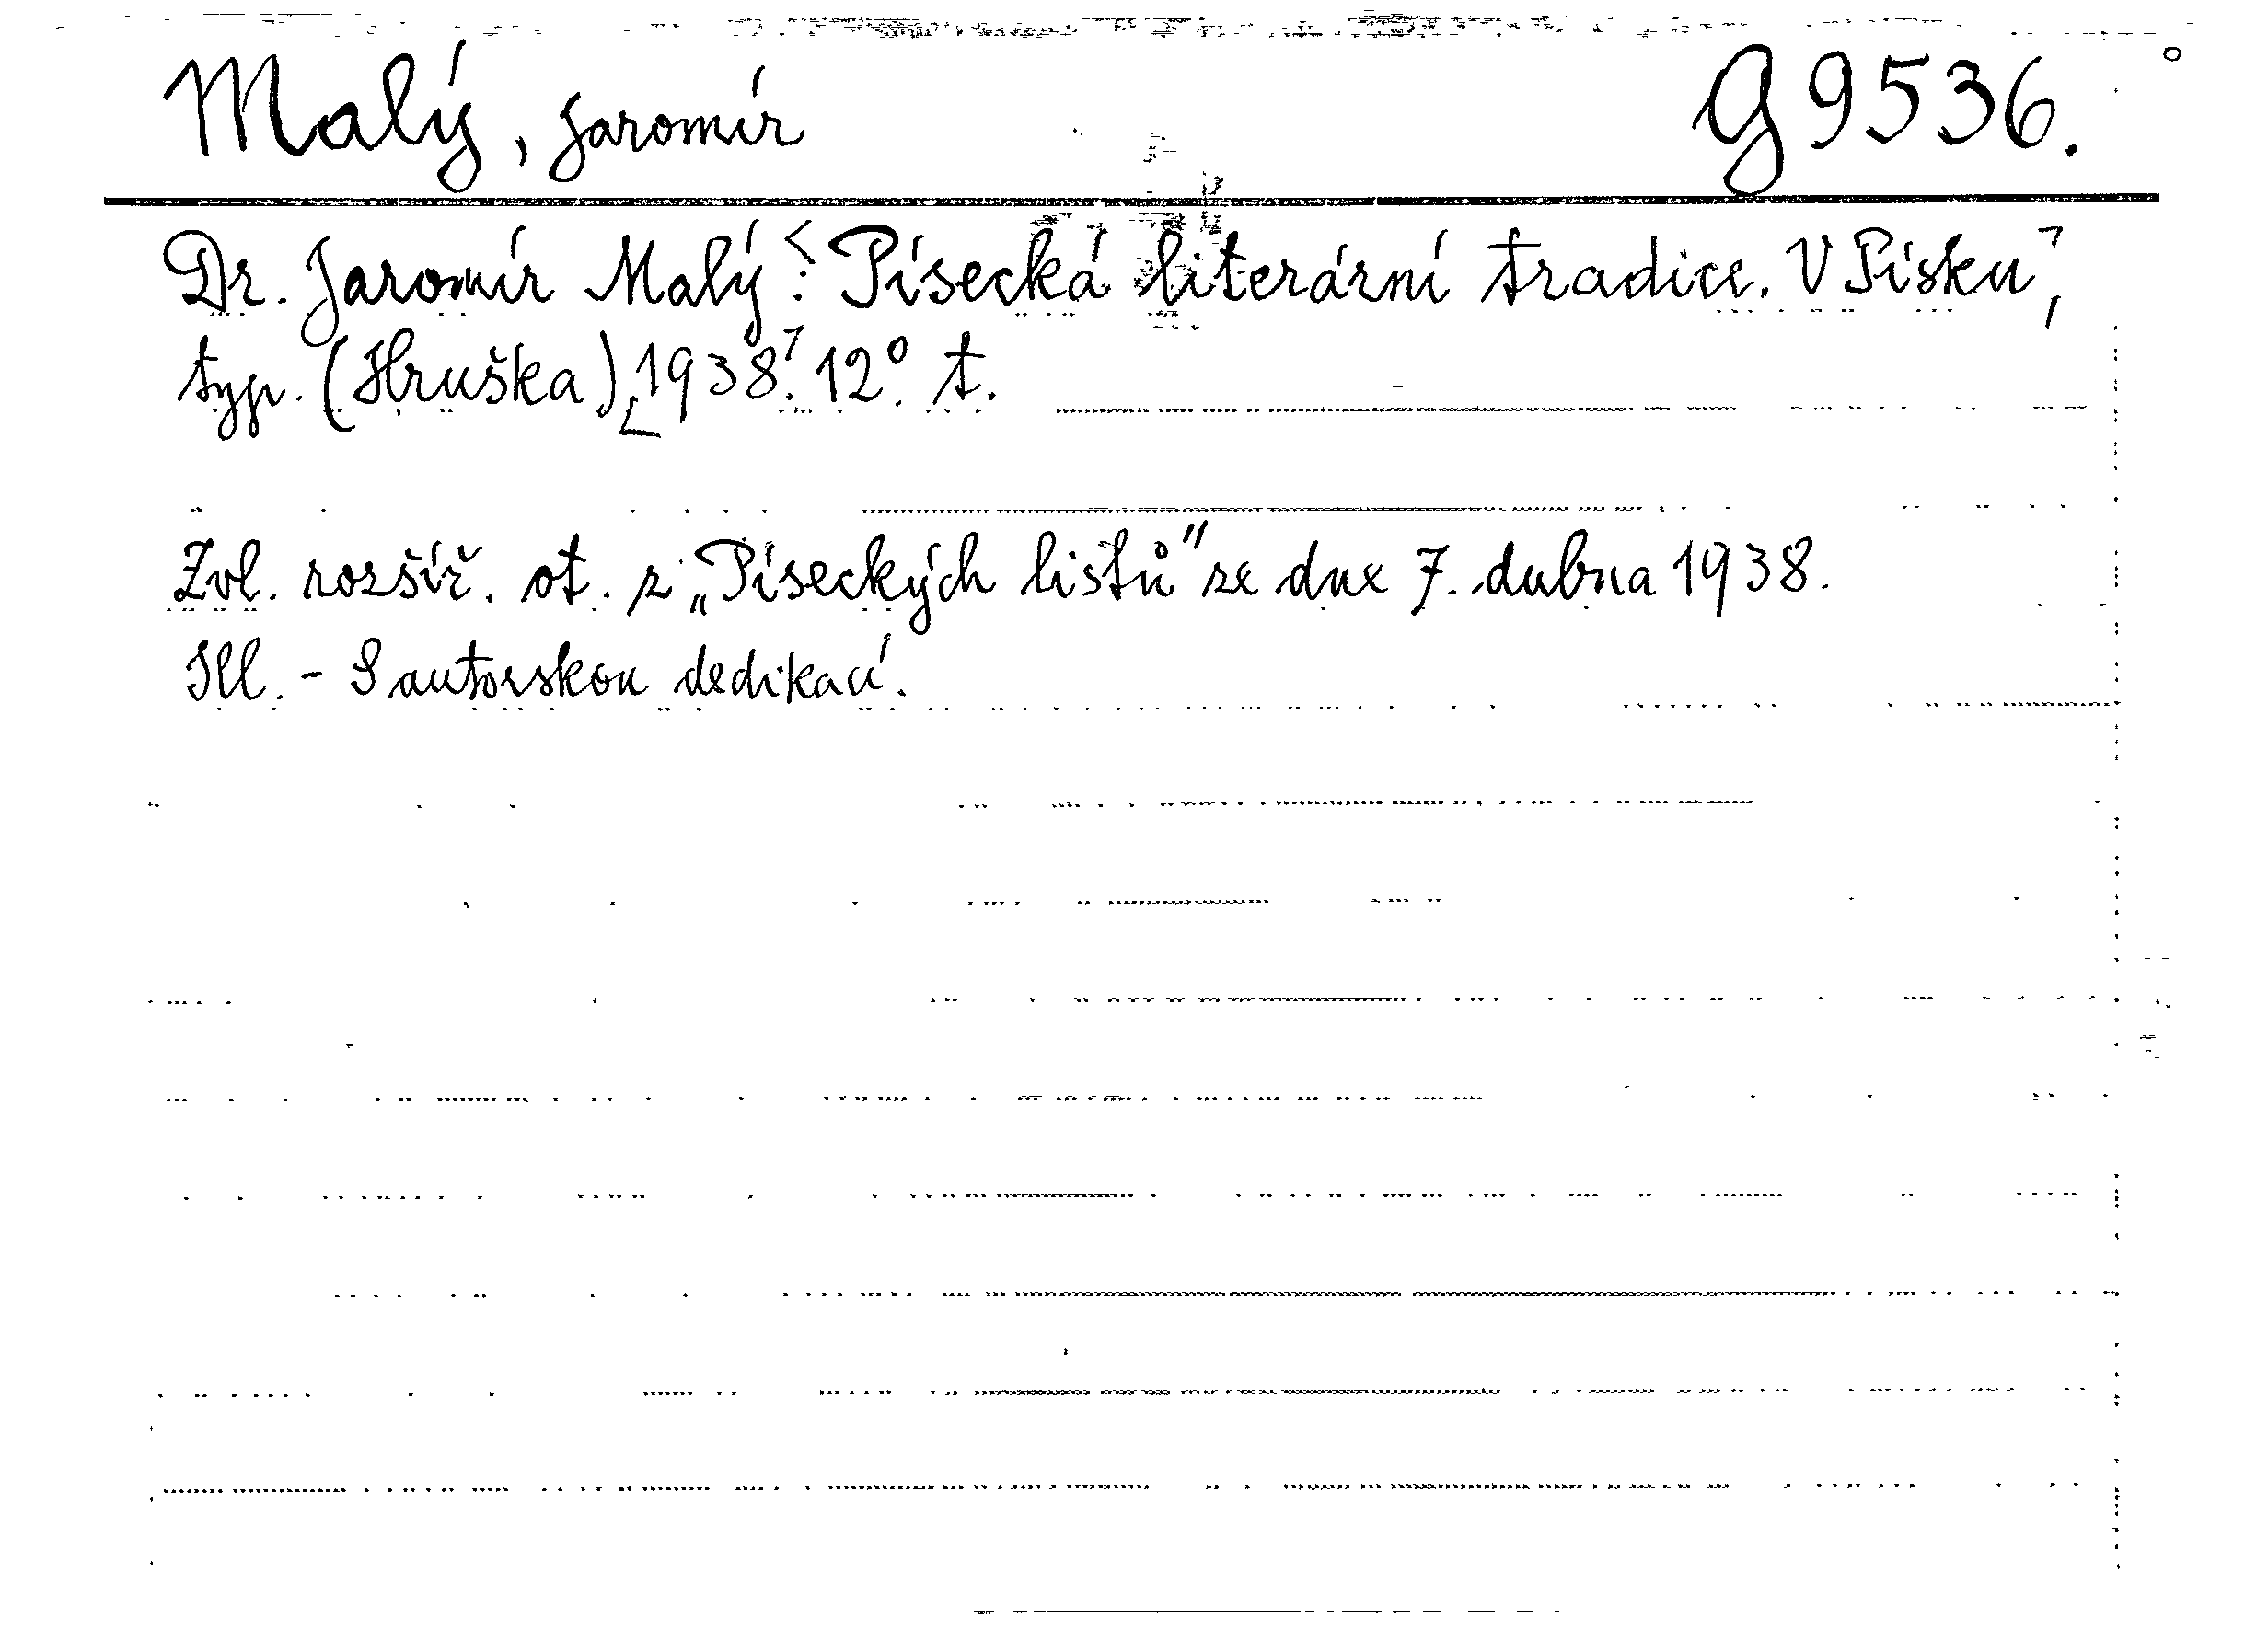 Malý, Jaromír G 9536.
Dr. Jaromír Malý: Písecká literární tradice. V Písku,
typ. (Hruška) 1938. 12°. t.
Zvl. rozšíř. ot. z „Píseckých listů" ze dne 7. dubna 1938.
Ill. - S autorskou dedikací.